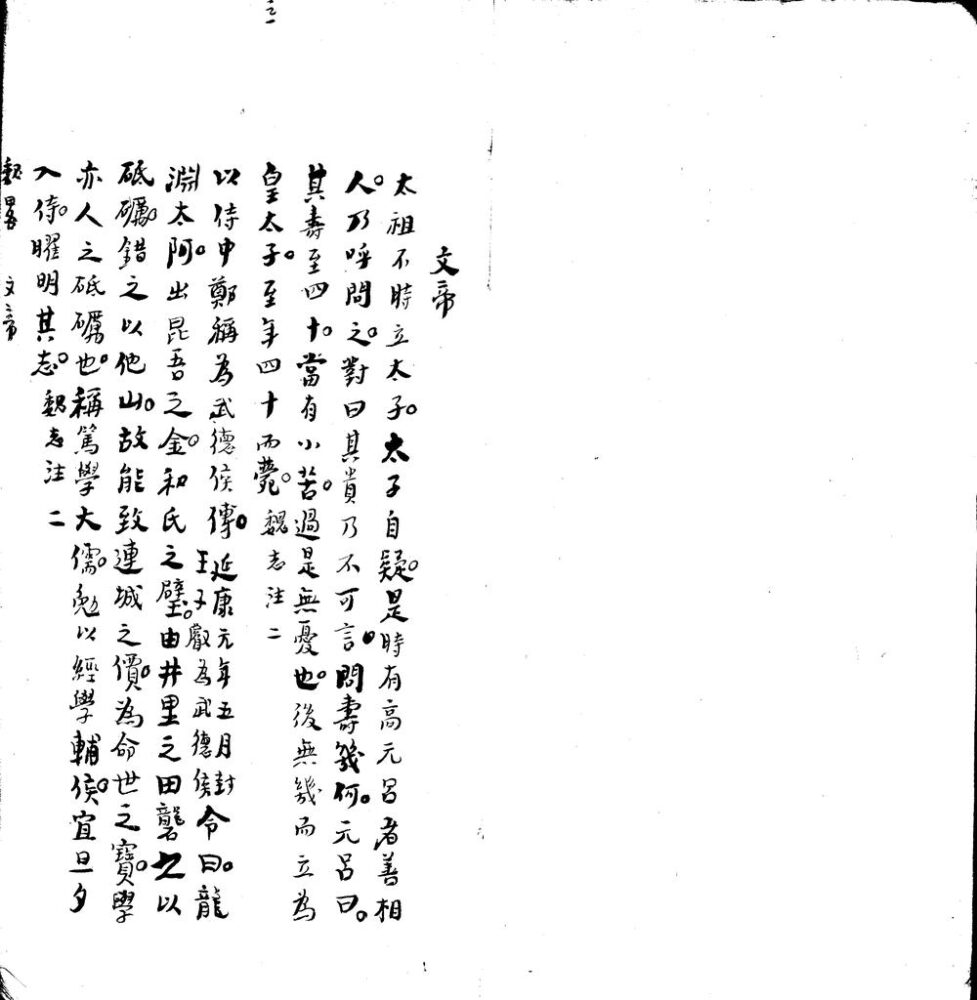 文帝
太祖不時立太子。太子自疑。是時有高元呂者善相
人。乃呼問之。對曰其貴乃不可言。問壽幾何。元呂曰。
其壽至四十。當有小苦。過是無憂也。後無幾而立為
皇太子。至年四十而薨。魏志注二
以侍中鄭稱為武德侯傅。延康元年五月封王子叡為武德侯令曰。龍
淵太阿。出昆吾之金。和氏之璧。由井里之田。礱之以
砥礪。錯之以他山。故能致連城之價。為命世之寶。學
亦人之砥礪也。稱篤學大儒。勉以經學輔侯。宜旦夕
入侍。曜明其志。魏志注二
魏畧 文帝
三